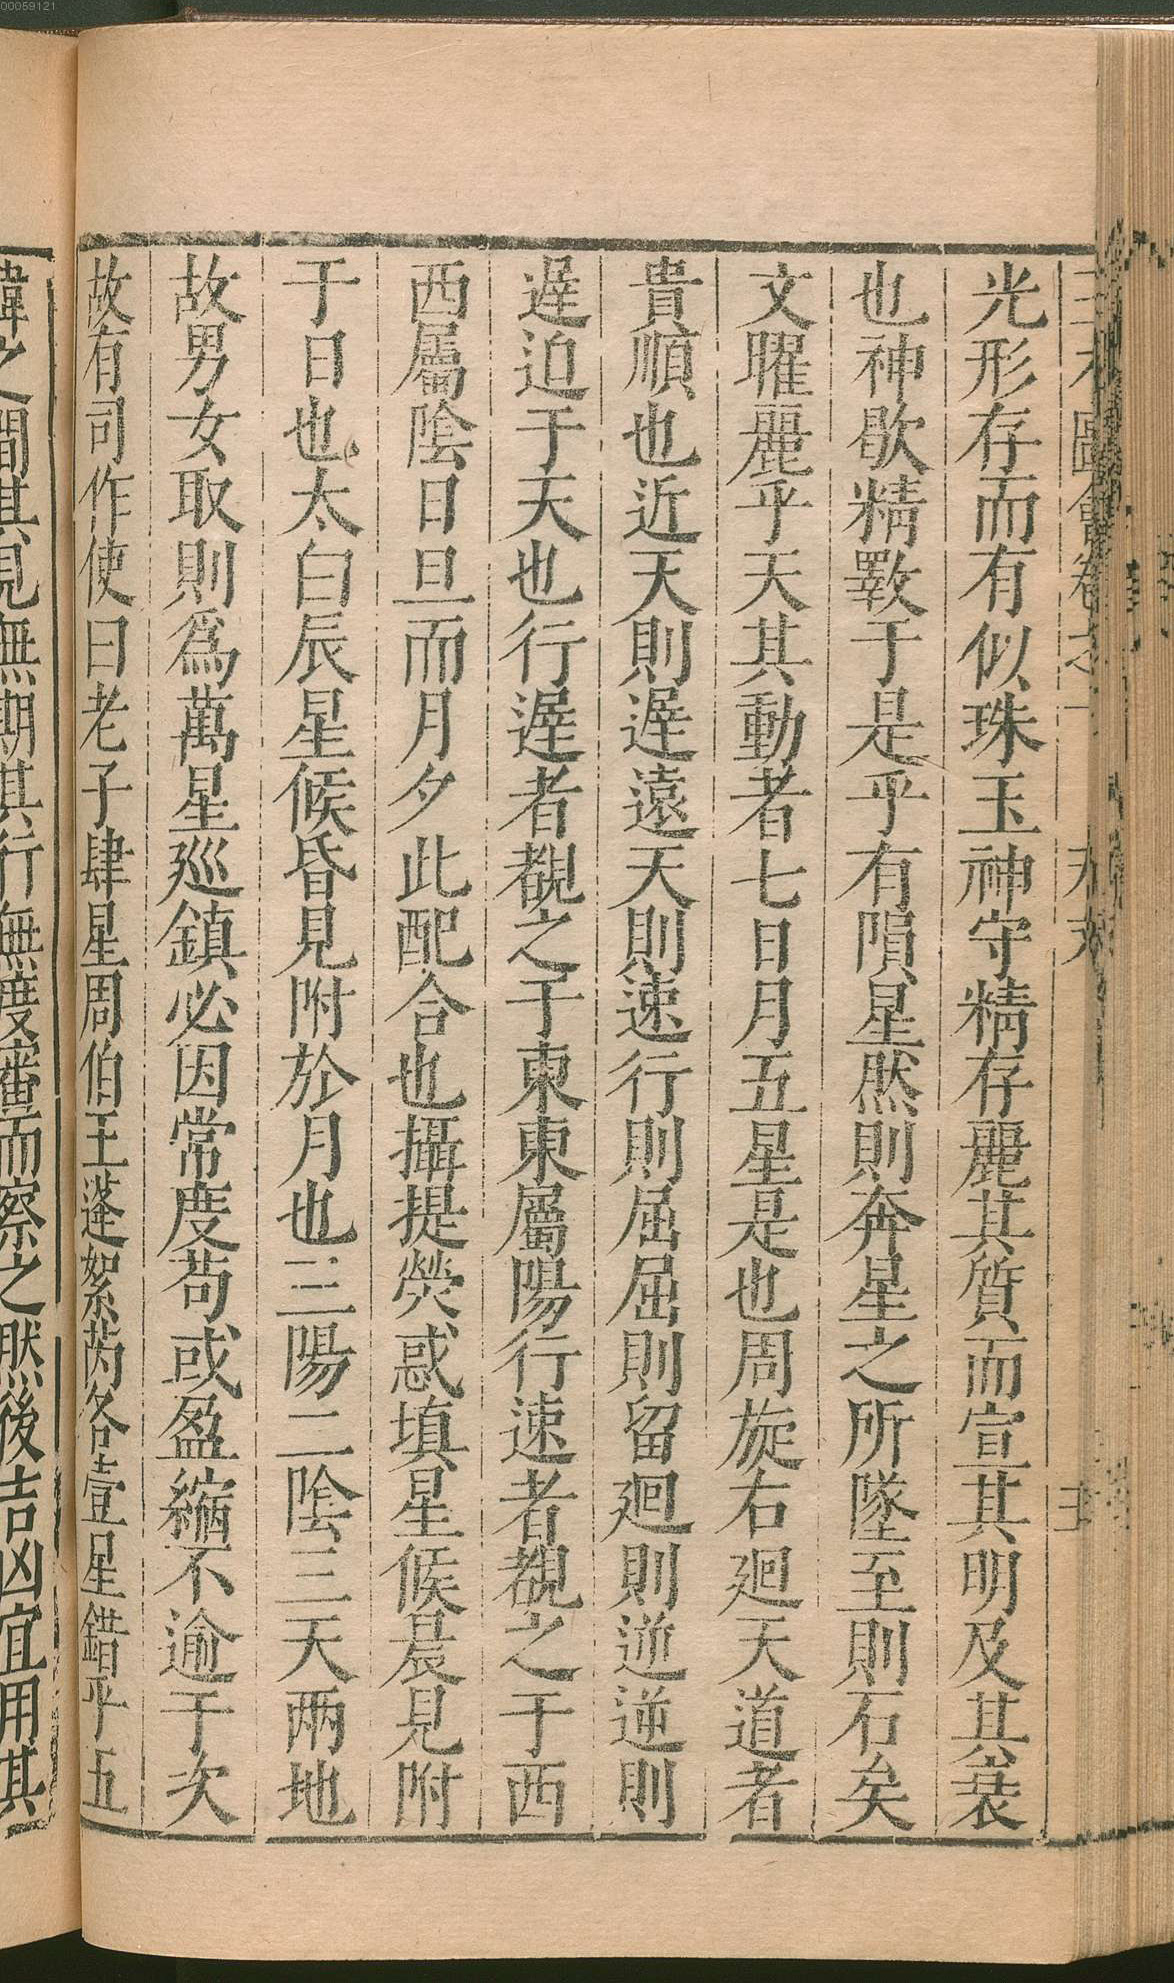 00059121
圖會卷之一 天文
光形存而有似珠玉神守精存麗其質而宣其明及其衰
也神歇精斁于是乎有隕星然則奔星之所墜至則石矣
文曜麗乎天其動者七日月五星是也周旋右廻天道者
貴順也近天則遲遠天則速行則屈屈則留廻則逆逆則
遲迫于天也行遲者覩之于東東屬陽行速者覩之于西
西屬陰日旦而月夕此配合也攝提熒惑填星候晨見附
于日也太白辰星候昏見附於月也三陽二陰三天兩地
故男女取則焉萬星巡鎮必因常度苟或盈縮不逾于次
故有司作使曰老子肆星周伯王蓬絮芮各壹星錯乎五
緯之間其見無期其行無度審而察之然後吉凶宜用其